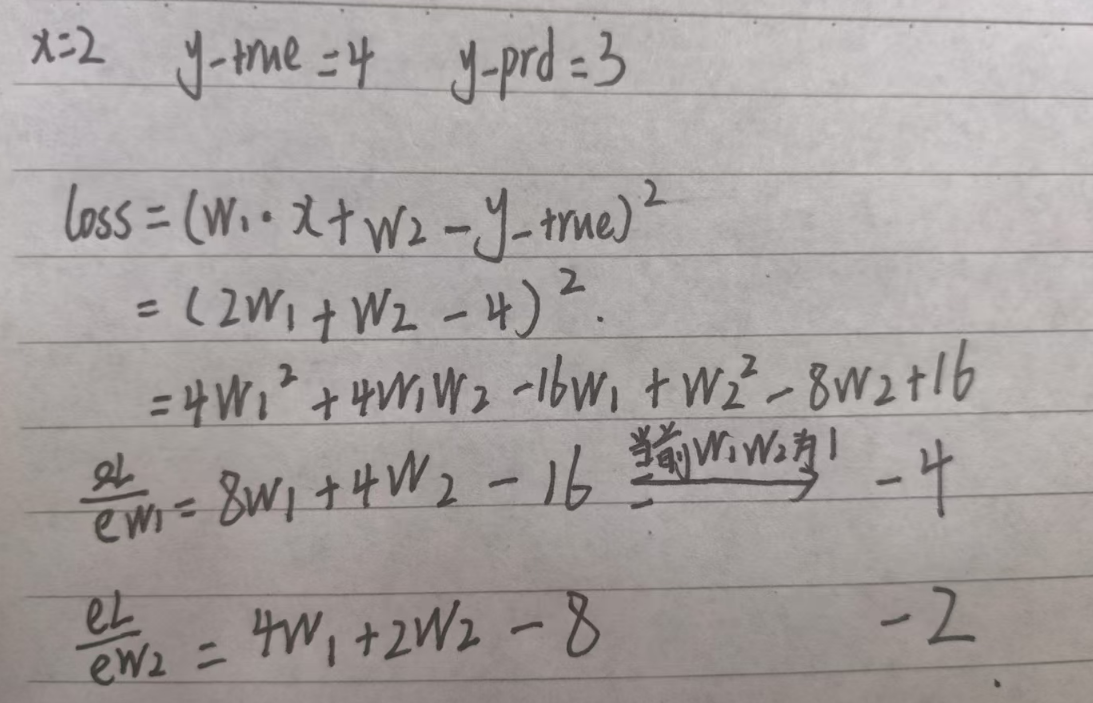 x=2 y-true=4 y-prd=3
loss=(w₁·x+w₂-y-true)²
=(2w₁+w₂-4)².
=4w₁²+4w₁w₂-16w₁+w₂²-8w₂+16
eL/ew₁=8w₁+4w₂-16 当前w₁w₂为1 → -4
eL/ew₂=4w₁+2w₂-8 -2